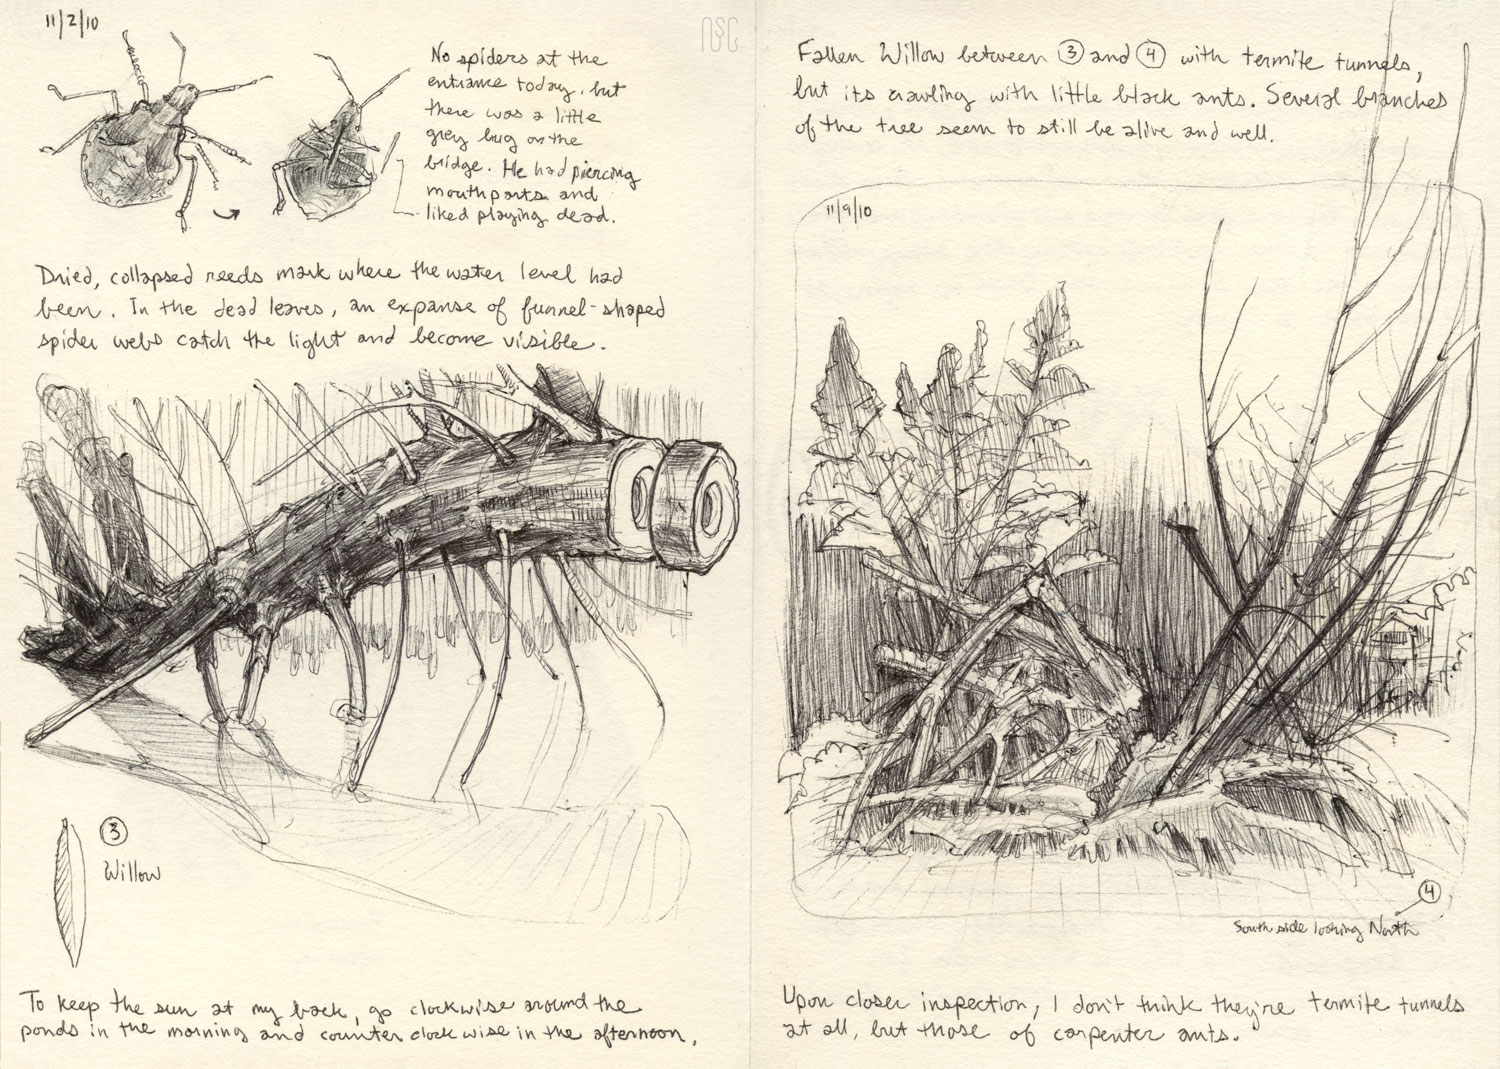 11/2/10
No spiders at the
entrance today, but
there was a little
grey bug on the
bridge. He had piercing
mouthparts and
liked playing dead.
Dried, collapsed reeds mark where the water level had
been. In the dead leaves, an expanse of funnel-shaped
spider webs catch the light and become visible.
3
Willow
To keep the sun at my back, go clockwise around the
ponds in the morning and counter clockwise in the afternoon.
NSC
Fallen Willow between 3 and 4 with termite tunnels,
but its crawling with little black ants. Several branches
of the tree seem to still be alive and well.
11/9/10
4
South side looking North
Upon closer inspection, I don't think they're termite tunnels
at all, but those of carpenter ants.